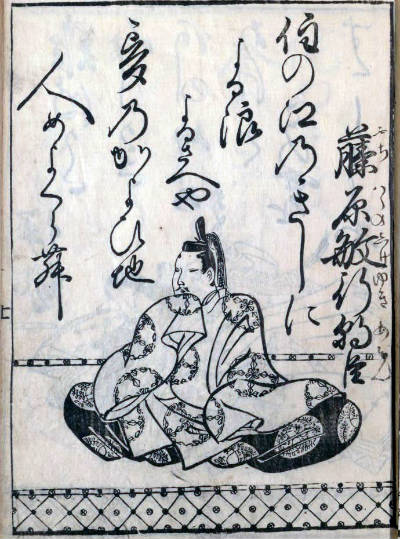 藤原敏行朝臣
ふぢはらのとしゆきあそん
住の江乃きしに
よる浪
よるさへや
夢乃かよひ地
人めよくら舞